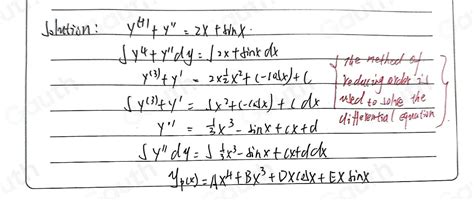 Solution: y⁽⁴⁾ + y'' = 2x + sinx.
∫ y⁴ + y'' dy = ∫ 2x + sinx dx
y⁽³⁾ + y' = 2×½x² + (-cosx) + C
∫ y⁽³⁾ + y' = ∫x² + (-cosx) + C dx
y'' = ⅓x³ - sinx + cx + d
∫ y'' dy = ∫ ⅓x³ - sinx + cx + d dx
yₚ(x) = Ax⁴ + Bx³ + Dx cosx + Ex sinx
the method of
reducing order is
used to solve the
differential equation